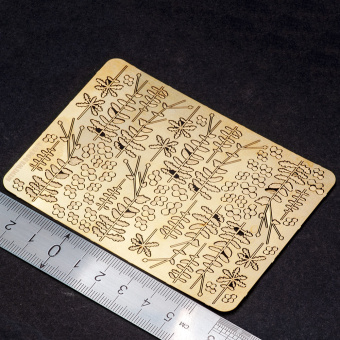 0 1 2 3 4 5 CM